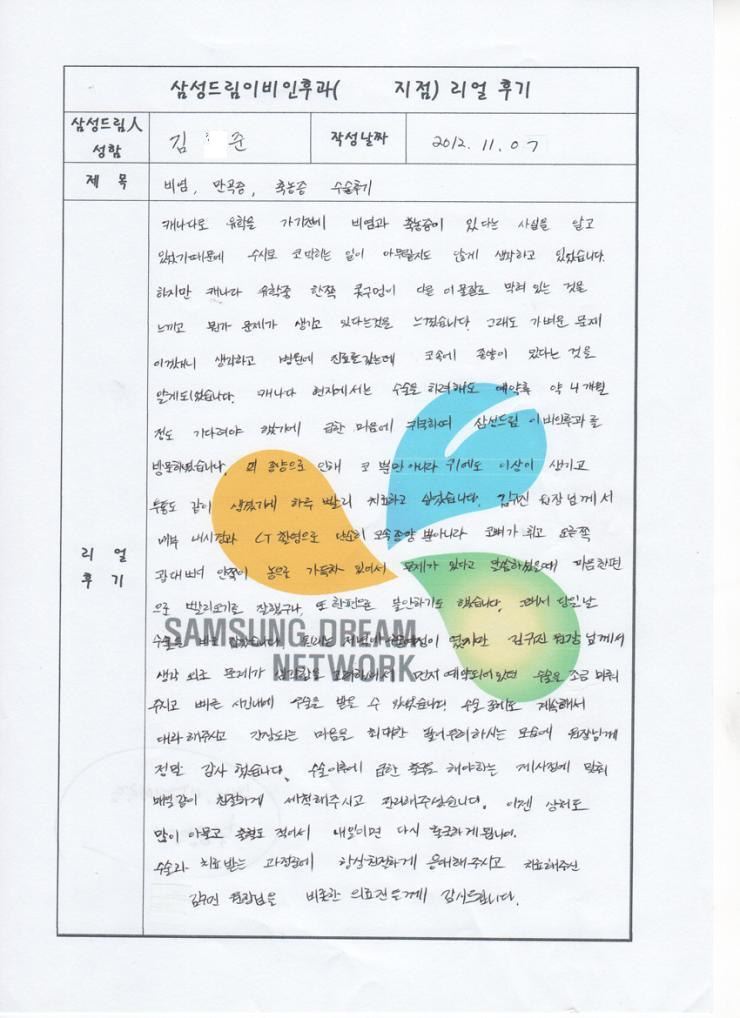 삼성드림이비인후과(   지점) 리얼 후기
삼성드림人 성함
김 준
작성날짜
2012. 11. 07
제 목
비염, 만곡증, 축농증 수술후기
리 얼 후 기
캐나다로 유학을 가기전에 비염과 축농증이 있다는 사실을 알고
있었기때문에 수시로 코막히는 일이 아무렇지도 않게 생각하고 있었습니다.
하지만 캐나다 유학중 한쪽 콧구멍이 다른 이물질로 막혀 있는 것을
느끼고 뭔가 문제가 생기고 있다는것을 느꼈습니다. 그래도 가벼운 문제
이겠거니 생각하고 병원에 진료를 갔는데 코속에 종양이 있다는 것을
알게되었습니다. 캐나다 현지에서는 수술을 하려해도 예약후 약 4개월
정도 기다려야 했기에 급한 마음에 귀국하여 삼성드림 이비인후과를
방문하였습니다. 이 종양으로 인해 코 뿐만 아니라 귀에도 이상이 생기고
두통도 같이 생겼기에 하루 빨리 치료하고 싶었습니다. 김규진 원장님께서
내부 내시경과 CT 촬영으로 단순히 코속종양 뿐아니라 코뼈가 휘고 오른쪽
광대뼈 안쪽이 농으로 가득차 있어서 문제가 있다고 말씀하셨을때 마음한편
으로 빨리오기로 잘했구나, 또 한편으론 불안하기도 했습니다. 그래서 당일날
수술을 바로 잡았습니다. 저녁에 수술예정이 였지만 김규진 원장님께서
생각 외로 문제가 심각함을 고려하셔서 먼저 예약되어있던 수술을 조금 미뤄
주시고 빠른 시간내에 수술을 받을 수 있었습니다! 수술 중에도 계속해서
대화해주시고 긴장되는 마음을 최대한 풀어주려 하시는 모습에 원장님께
정말 감사 했습니다. 수술이후에 급한 출국을 해야하는 제사정에 맞춰
매일같이 친절하게 세척해주시고 관리해주셨습니다. 이젠 상처도
많이 아물고 출혈도 적어서 내일이면 다시 출국하게 됩니다.
수술과 치료받는 과정중에 항상친절하게 응대해주시고 치료해주신
김규진 원장님을 비롯한 의료진분께 감사드립니다.
SAMSUNG DREAM
NETWORK